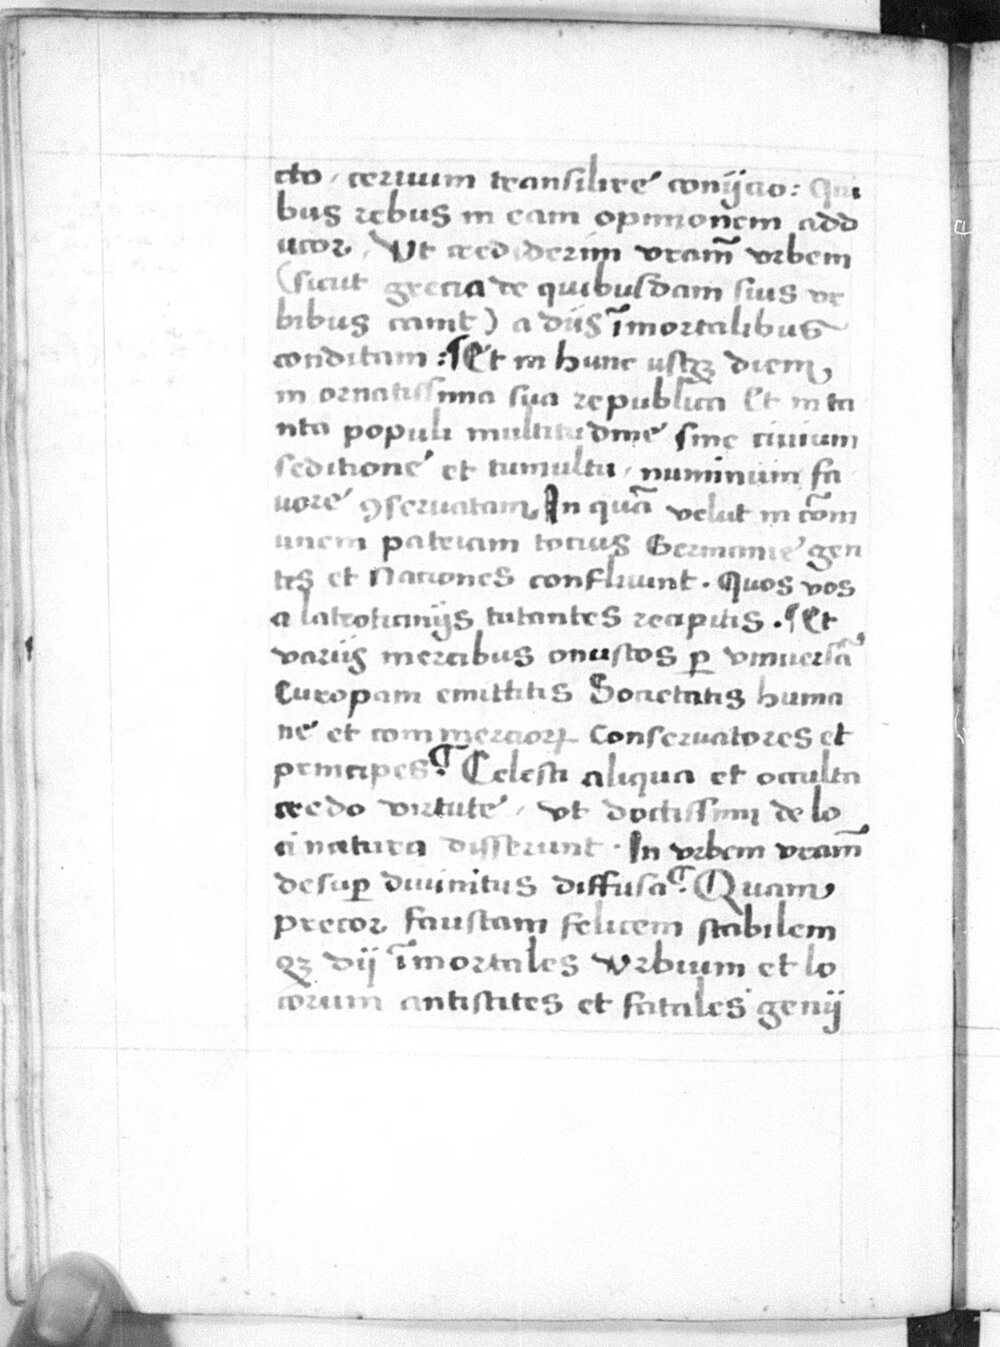 cto, ceruum transilire conijcio: Qui
bus rebus in eam opinionem add
ucor, Vt crediderim vram̄ vrbem
(sicut grecia de quibusdam suis vr
bibus canit) a diis īmortalibus
conditam: Et in hunc usqꝫ diem,
in ornatissima sua republica Et in ta
nta populi multitudine sine ciuium
seditione et tumultu, numinum fa
uore ꝯseruatam, In quā velut in cōm
unem patriam totius Germanie gen
tes et Nationes confluunt. Quos vos
a latrocinijs tutantes recipitis. Et
variis mercibus onustos ꝑ vniuersā
Europam emittitis Societatis huma
ne et commerciorꝝ Conseruatores et
principes. Celesti aliqua et occulta
credo virtute, vt doctissimi de lo
ci natura disserunt. In vrbem vram̄
desuꝑ diuinitus diffusa. Quam
precor, faustam felicem stabilem
qꝫ dij īmortales Vrbium et lo
corum antistites et fatales genij